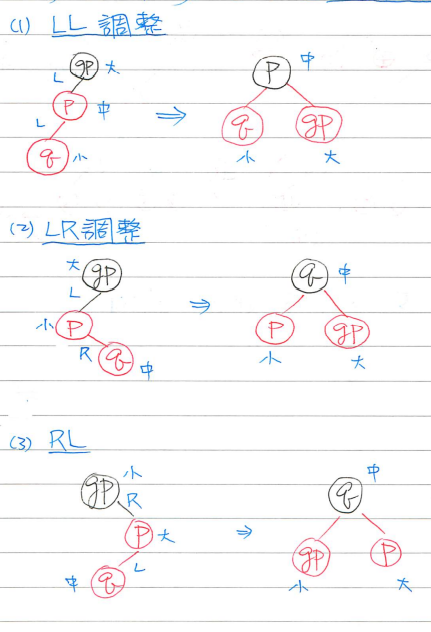 (1) LL 調整
gp 大
L
p 中
L
q 小
⇒
p 中
q gp
小 大
(2) LR調整
大 gp
L
小 p
R q 中
⇒
q 中
p gp
小 大
(3) RL
小
gp R
p 大
L
中 q
⇒
中
q
gp p
小 大